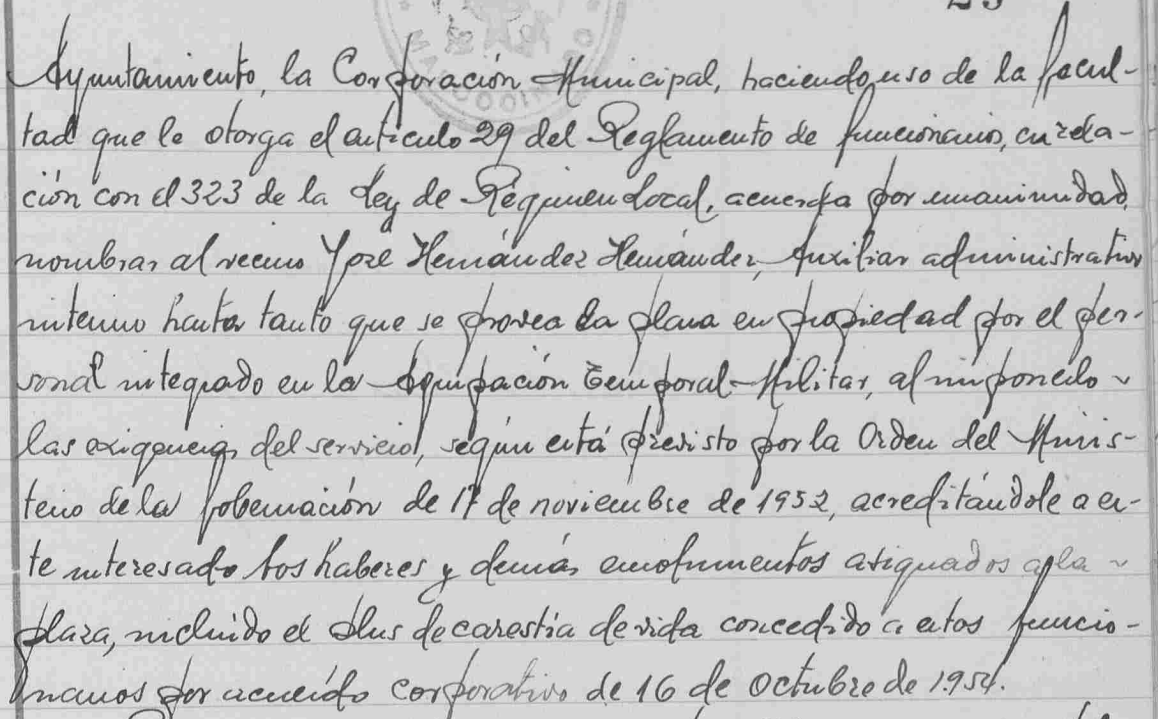 Ayuntamiento, la Corporación Municipal, haciendo uso de la facul-
tad que le otorga el artículo 29 del Reglamento de funcionarios, en rela-
ción con el 323 de la Ley de Régimen Local, acuerda por unanimidad,
nombrar al vecino José Hernández Hernández, Auxiliar administrativo
interino hasta tanto que se provea la plaza en propiedad por el per-
sonal integrado en la Agrupación Temporal Militar, al imponerlo
las exigencias del servicio, según está previsto por la Orden del Minis-
terio de la Gobernación de 17 de noviembre de 1952, acreditándole a es-
te interesado los haberes y demás emolumentos asignados a la
plaza, incluido el plus de carestía de vida concedido a estos funcio-
narios por acuerdo corporativo de 16 de Octubre de 1954.